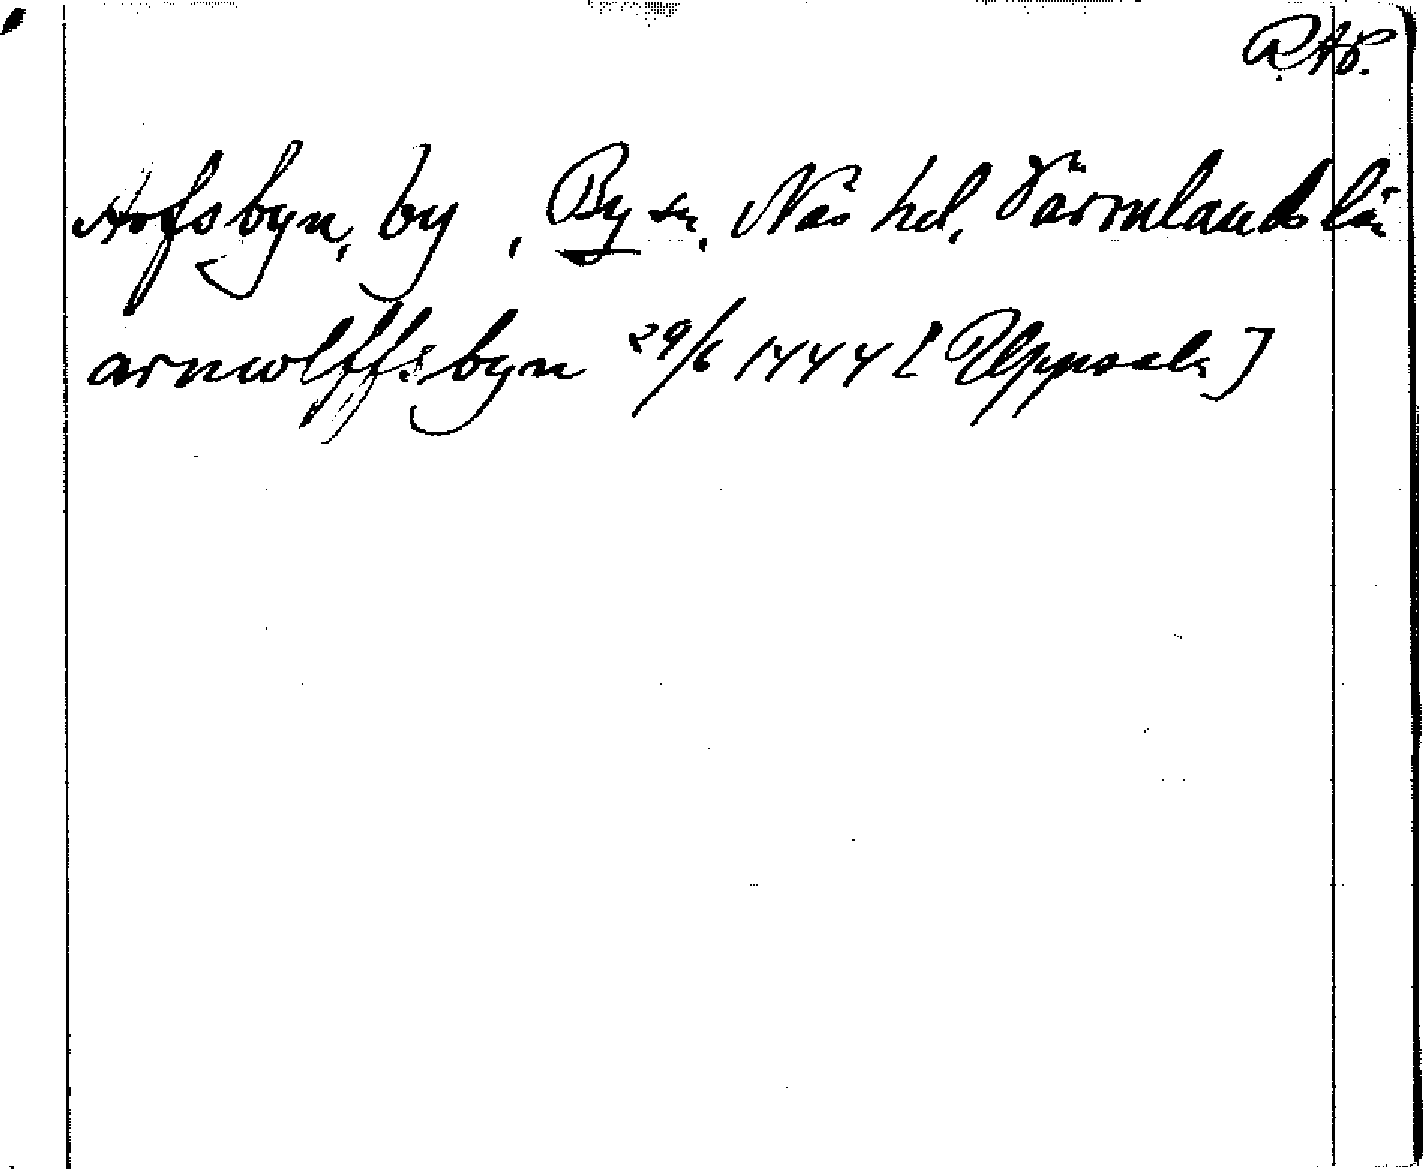 RAP.
Hofsbyn, by , By sn, Näs hd, Värmlands län
arnwolffsbyn 29/6 1444 [Uppsala]